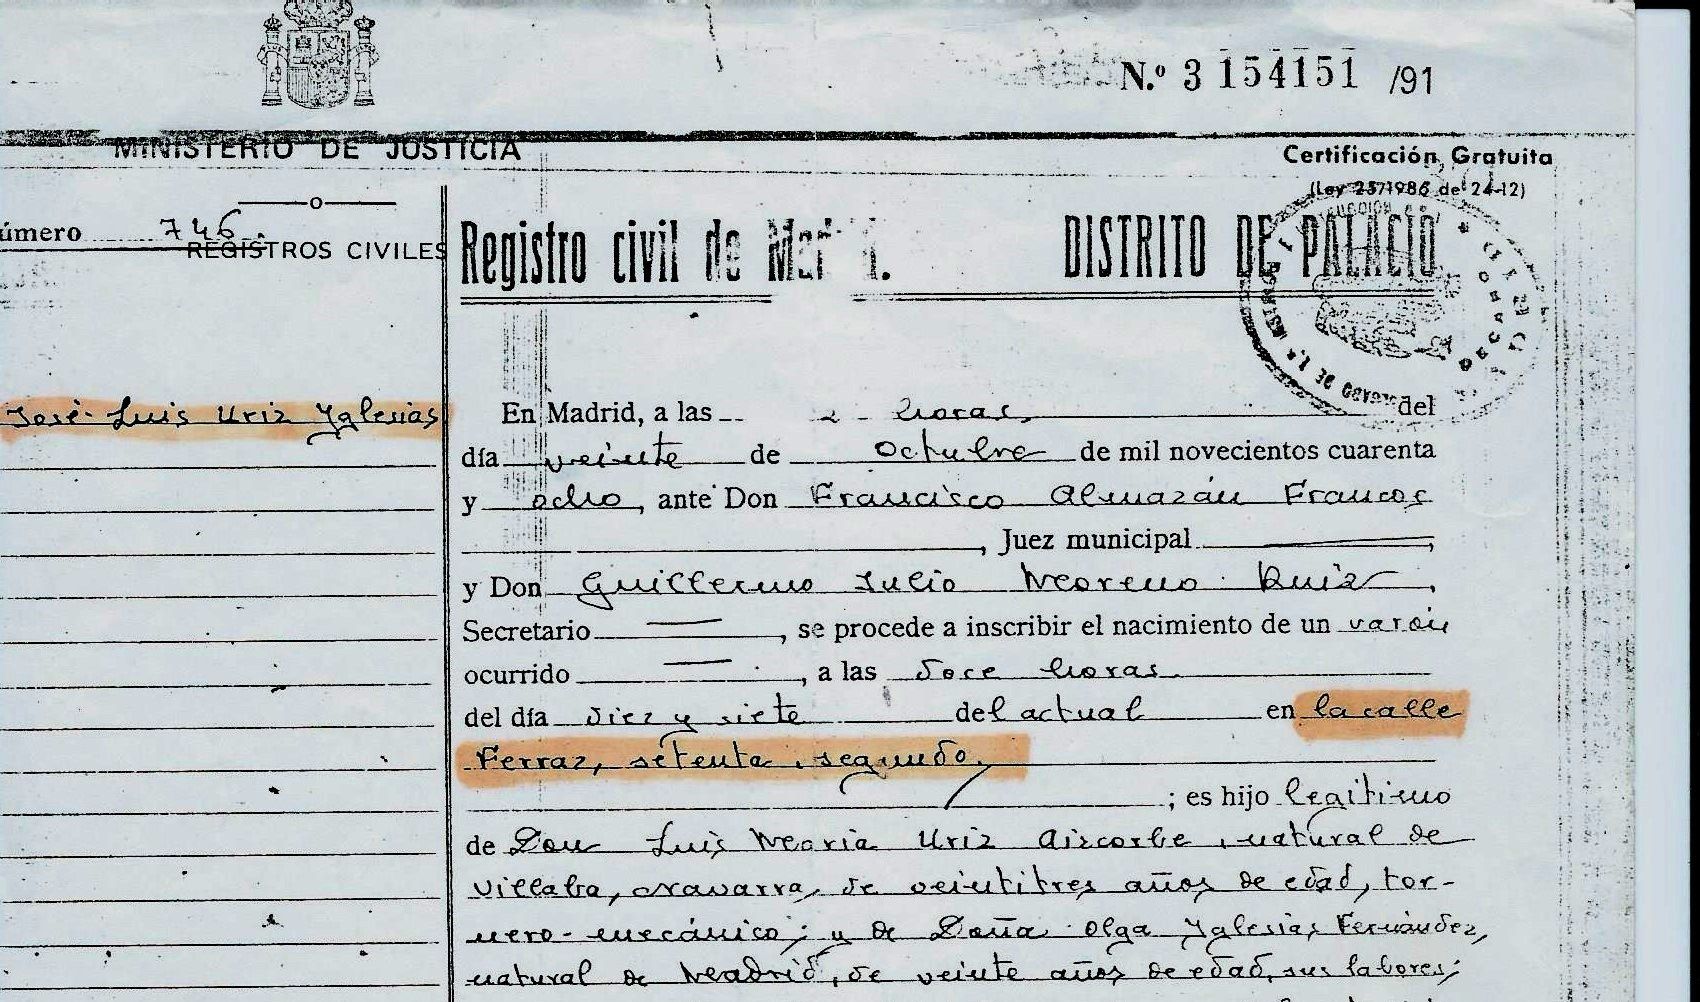 N.º 3 154151 /91
MINISTERIO DE JUSTICIA
Certificación Gratuita
(Ley 25/1986 de 24-12)
úmero 746
REGISTROS CIVILES
Registro civil de DISTRITO DE PALACIO
José-Luis Uriz Yglesias
En Madrid, a las 2 horas, del
día veinte de octubre de mil novecientos cuarenta
y ocho, ante Don Francisco Almazán Francos
, Juez municipal ,
y Don Guillermo Julio Moreno Ruiz,
Secretario , se procede a inscribir el nacimiento de un varón
ocurrido , a las doce horas
del día diez y siete del actual en la calle
Ferraz, setenta, segundo,
; es hijo legitimo
de Don Luis Maria Uriz Aizcorbe, natural de
Villaba, Navarra, de veintitres años de edad, tor-
nero-mecánico; y de Doña Olga Yglesias Fernández,
natural de Madrid, de veinte años de edad, sus labores;